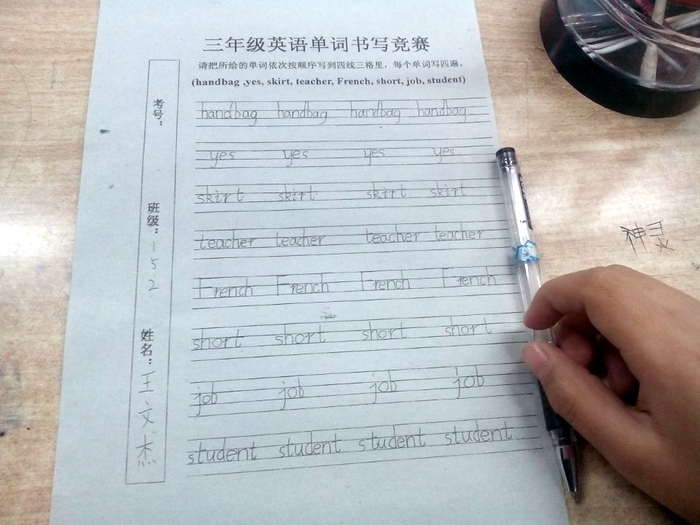 三年级英语单词书写竞赛
请把所给的单词依次按顺序写到四线三格里，每个单词写四遍。
(handbag ,yes, skirt, teacher, French, short, job, student)
考号：
班级：152
姓名：王文杰
handbag handbag handbag handbag
yes yes yes yes
skirt skirt skirt skirt
teacher teacher teacher teacher
French French French French
short short short short
job job job job
student student student student
神灵